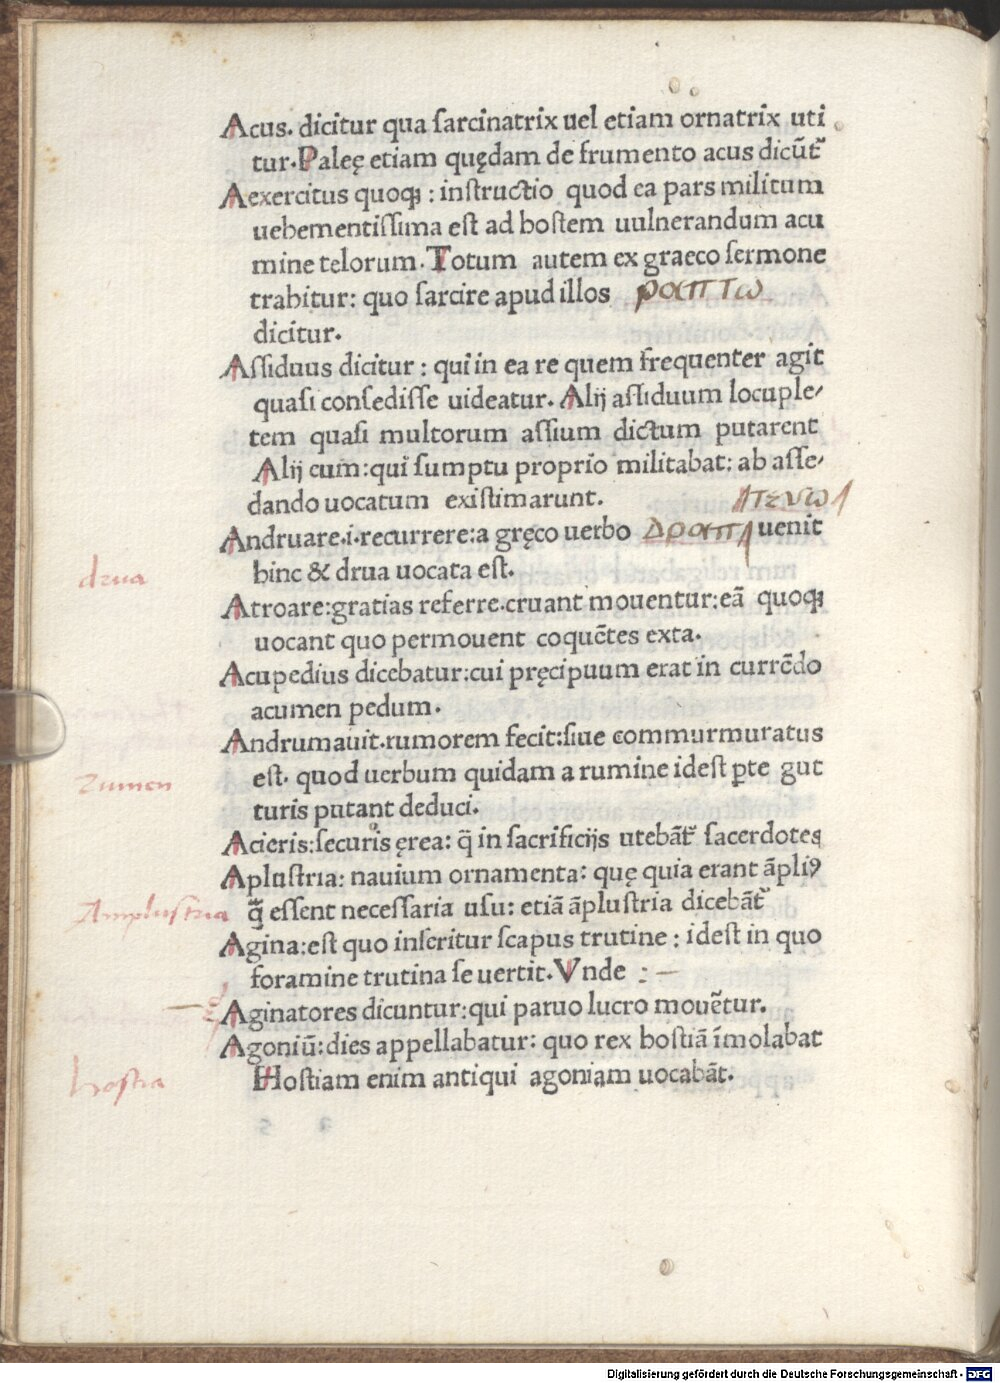 Acus. dicitur qua sarcinatrix uel etiam ornatrix uti
tur. Paleę etiam quędam de frumento acus dicūt᷑
Aexercitus quoqꝫ : instructio quod ea pars militum
uehementissima est ad hostem uulnerandum acu
mine telorum. Totum autem ex graeco sermone
trahitur: quo sarcire apud illos ραπτω
dicitur.
Assiduus dicitur : qui in ea re quem frequenter agit
quasi consedisse uideatur. Alij assiduum locuple⸗
tem quasi multorum assium dictum putarent
Alij eum:qui sumptu proprio militabat: ab asse⸗
dando uocatum existimarunt.
Andruare.i.recurrere:a gręco uerbo Δραπ uenit
hinc & drua uocata est.
drua
Atroare:gratias referre.cruant mouentur:eā quoqꝫ
uocant quo permouent coquētes exta.
Acupedius dicebatur:cui pręcipuum erat in currēdo
acumen pedum.
Andrumauit.rumorem fecit:siue commurmuratus
est. quod uerbum quidam a rumine idest ꝑte gut
turis putant deduci.
rumen
Acieris:securis ęrea: q̄ in sacrificijs utebāt᷑ sacerdotes
Aplustria: nauium ornamenta: quę quia erant āpliꝰ
q̄ essent necessaria usu: etiā āplustria dicebāt᷑
Amplustria
Agina:est quo inseritur scapus trutine : idest in quo
foramine trutina se uertit. Vnde : —
Aginatores dicuntur:qui paruo lucro mouētur.
Agoniū:dies appellabatur: quo rex hostiā īmolabat
Hostiam enim antiqui agoniam uocabāt.
hostia
Digitalisierung gefördert durch die Deutsche Forschungsgemeinschaft - DFG